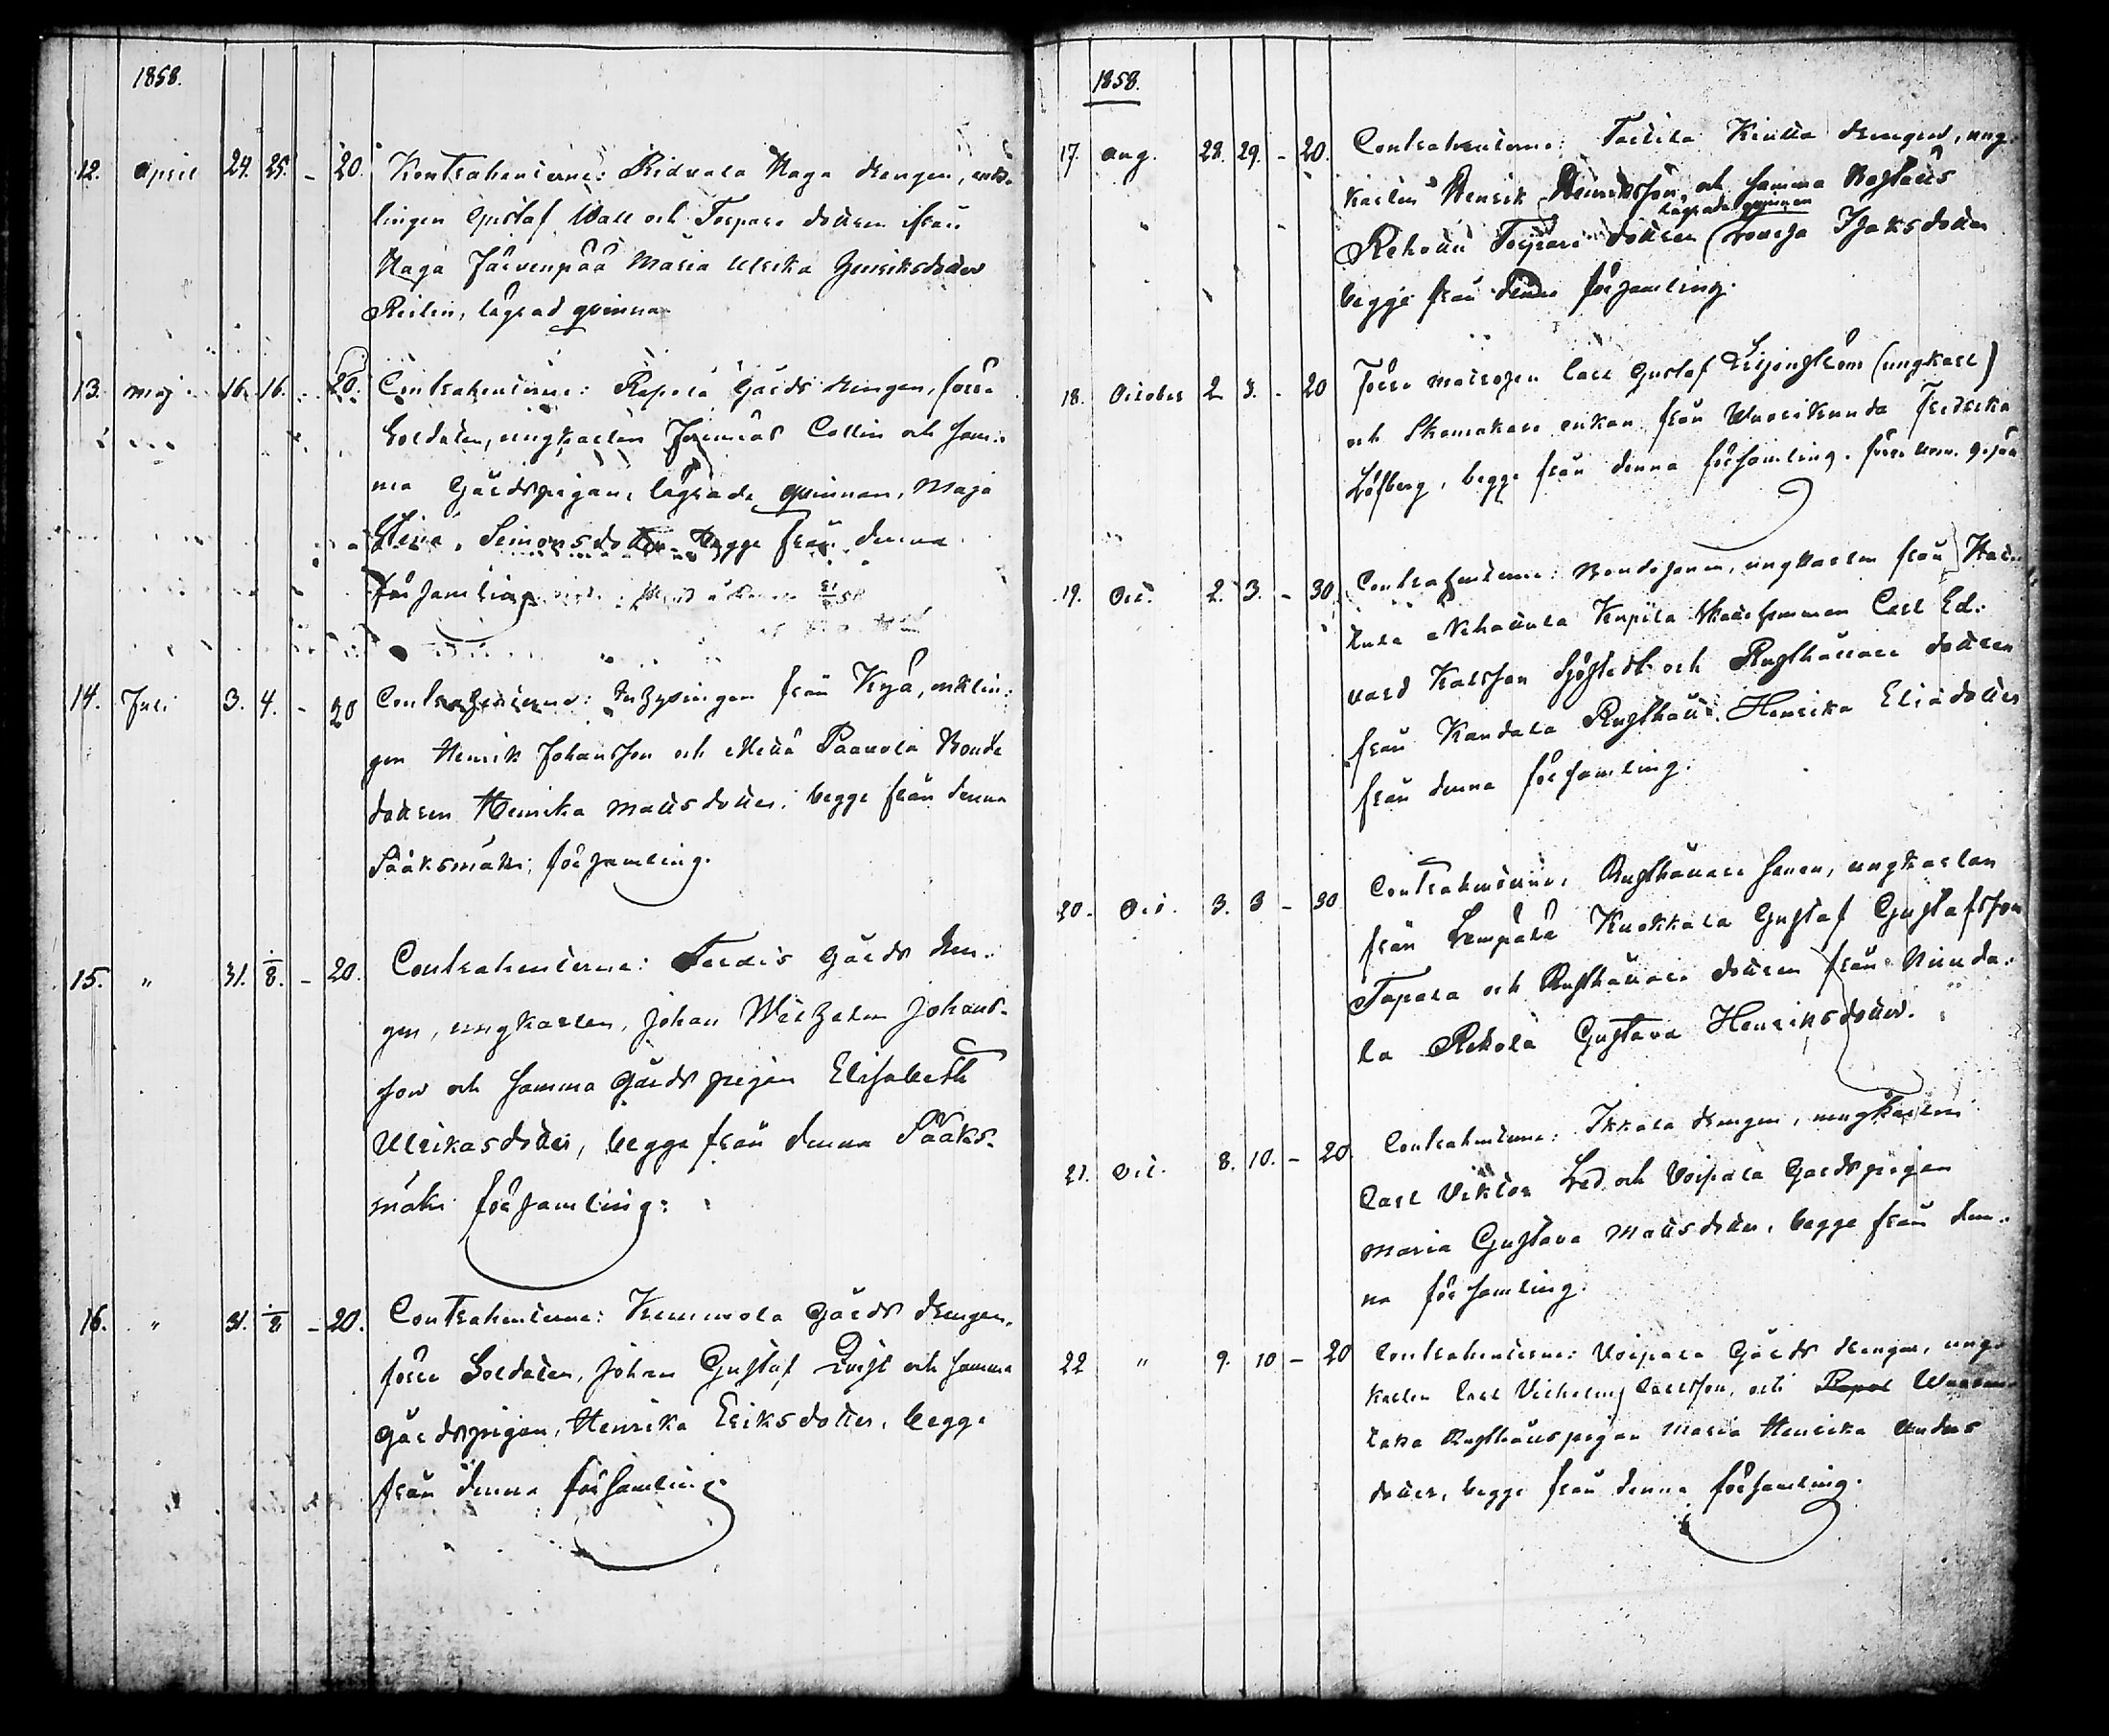 1858.
12. April 24. 25. - 20. Kontrahenterne: Ridvala Haga drengen, enk-
lingen Gustaf Wall och Torpare dottren ifrån
Haga Järvenpää Maria Ulrika Henriksdotter
Reilin, lägrad qvinna
13. Maj 16. 16. 20. Contrahenterne: Rapola Gårds drengen, förra
Soldaten, ungkarlen Jeremias Collin och sam-
ma Gårdspigan, lägrade qvinnan, Maja
Stina Simonsdotter begge från denna
församling
14. Juli 3. 4. - 20 Contrahenterne: Inhysingen från Kyä, enklin-
gen Henrik Johansson och Paavola Bonde
dottren Henrika Mattsdotter, begge från denna
Sääksmäki församling.
15. " 31. 1/8. - 20. Contrahenterne: Gårds dren-
gen, ungkarlen, Johan Wilhelm Johans-
son och samma Gårds pigan Elisabeth
Ulrikasdotter, begge från denna Sääks-
mäki församling:
16. " 31. 1/8 - 20. Contrahenterne: Kemmola Gårds drengen,
förre Soldaten, Johan Gustaf Qvist och samma
Gårdspigan, Henrika Eriksdotter, begge
från denna församling.
1858.
17. Aug. 28. 29. - 20. Contrahenterne: drengen, ung-
karlen Henrik Henriksson och samma Boställs
lägrade qvinnan
Torpare dottren Lovisa Isaksdotter
begge från denna församling.
18. October 2 3. - 20 Förre matrosen Carl Gustaf Liljenström (ungkarl)
och Skomakare enkan från Fredrika
Löfberg, begge från denna församling.
19. Oct. 2. 3. - 30. Contrahenterne: Bondesonen, ungkarlen från
Knpila Carl Ed-
vard Karlsson Sjöstedt och Rusthållare dottren
från Kandala Rusthåll Henrika Eliædotter
från denna församling.
20. Oct. 3. 3 - 30 Contrahenterne, Rusthållare sonen, ungkarlen
från Lempälä Kuokkala Gustaf Gustafsson
Tapola och Rusthållare dottren från
la Rekola Gustava Henriksdotter.
21. Oct. 8. 10. - 20. Contrahenterne: Ikkala drengen, ungkarlen
Carl Viktor Led och Voipala Gårdspigan
Maria Gustava Mattsdotter, begge från den-
na församling.
22 " 9. 10 - 20 Contrahenterne: Voipala Gårds drengen, ung-
karlen Carl Vilhelm Carlsson, och
Rusthållspigan Maria Henrika Anders
dotter, begge från denna församling.